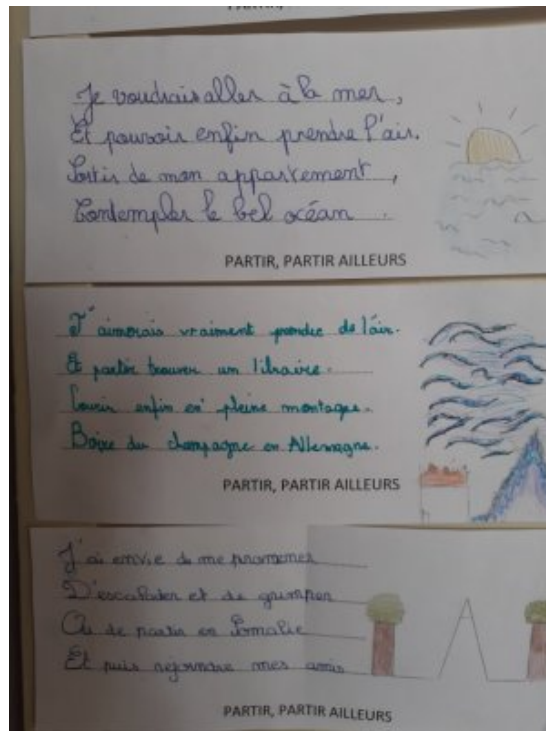 Je voudrais aller à la mer,
Et pouvoir enfin prendre l'air.
Sortir de mon appartement,
Contempler le bel océan.
PARTIR, PARTIR AILLEURS
J'aimerais vraiment prendre de l'air.
Et partir trouver un libraire.
Courir enfin en pleine montagne.
Boire du champagne en Allemagne.
PARTIR, PARTIR AILLEURS
J'ai envie de me promener
D'escalader et de grimper
Ou de partir en Somalie
Et puis rejoindre mes amis
PARTIR, PARTIR AILLEURS